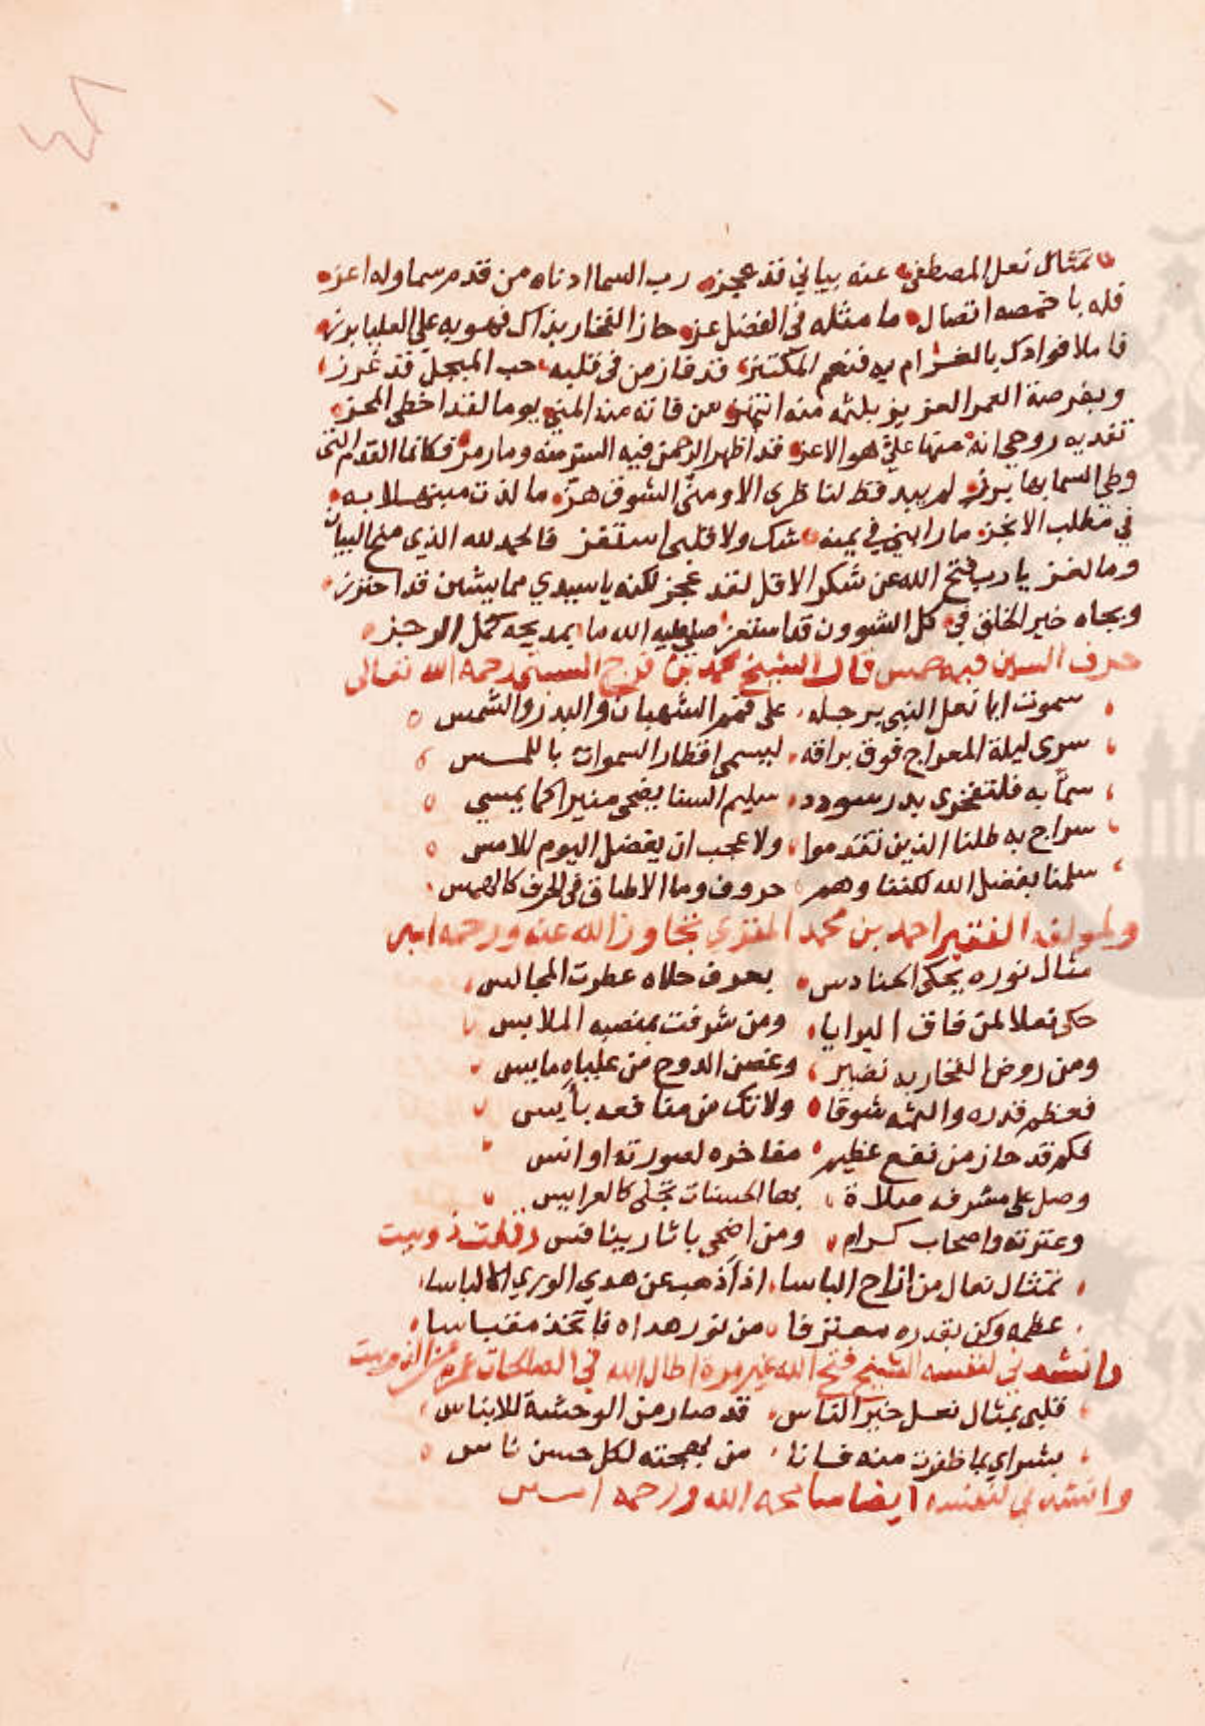 ٤٨
تمثال نعل المصطفى عنه بياني قد عجز رب السما ادناه من قدم سما وله اعز
فله باخمصه اتصال ما مثله في الفضل عز حاز الفخار بذاك فهو به على العليا برز
فاملا فوادك بالغرام به فنعم المكتنز قد فاز من في قلبه حب المبجل قد غرز
وبفرصة العمر العزيز بلثمه منه انتهز من فاته منه المنى يوما لقد اخطى المحز
تفديه روحي انه منها علي هو الاعز قد اظهر الرحمن فيه السر منه وما رمز فكانما القدم التي
وطي السما بها برز لم يبد قط لناظري الا ومنى الشوق هز ما لذت مبتهلا به
في مطلب الا نجز ما رابني في يمنه شك ولا قلبى استفز فالحمد لله الذي منح البيان
وما لغز يا رب فتح الله عن شكر الاقل لقد عجز لكنه يا سيدي مما يشين قد احترز
وبجاه خير الخلق في كل الشوون قد استعز صلى عليه الله ما بمديحه كمل الرجز
حرف السين فيه خمس قال الشيخ محمد بن فرج السبتي رحمه الله تعالى
سموت ايا نعل النبي برجله على قمم الشهبان والبدر والشمس
سرى ليلة المعراج فوق براقه ليسمى اقطار السموات باللمس
سما به فلتفخرى بدر سودد سليم السنا يضحى منيرا كما يمسي
سراج به طلنا الذين تقدموا ولا عجب ان يفضل اليوم للامس
سلمنا بفضل الله لكننا وهم حروف وما الاطباق في الحرف كالهمس
ولمولفه الفقير احمد بن محمد المقري تجاوز الله عنه ورحمه امين
مثال نوره يجكى الحنادس بعرف حلاه عطرت المجالس
حكى نعلا لمن فاق البرايا ومن شرفت بمنصبه الملابس
ومن روض الفخار به نضير وغصن الدوح من علياه مايس
فعظم قدره والثمه شوقا ولا تك من منافعه بأيس
فكم قد حاز من نفع عظيم مفاخره لصورته اوانس
وصل على مشرفه صلاة بها الحسنات تجلى كالعرايس
وعترته واصحاب كرام ومن اضحى باثار ينافس وقلت ذوبيت
تمثال نعال من ازاح الباسا اذ أذهب عن هدي الورى الالباسا
عظمه وكن بقدره معترفا من نور هداه فاتخذ مقباسا
وانشدني لنفسه الشيخ فتح الله غير مرة اطال الله في الصالحات عمره من الذوبيت
قلبى بمثال نعل خير الناس قد صار من الوحشة للايناس
بشراي بما ظفرت منه فانا من بهجته لكل حسن ناس
وانشدني لنفسه ايضا سامحه الله ورحمه